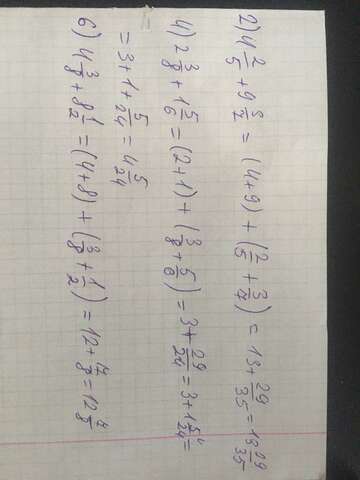 2) 4 2/5 + 9 3/7 = (4+9) + (2/5 + 3/7) = 13 + 29/35 = 13 29/35
4) 2 3/8 + 1 5/6 = (2+1) + (3/8 + 5/6) = 3 + 29/24 = 3 + 1 5/24 =
= 3 + 1 + 5/24 = 4 5/24
6) 4 3/8 + 8 1/2 = (4+8) + (3/8 + 1/2) = 12 + 7/8 = 12 7/8